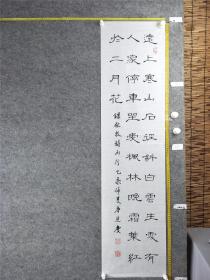 遠上寒山石徑斜白雲生處有
人家停車坐愛楓林晚霜葉紅
於二月花
錄杜牧詩山行乙未仲夏